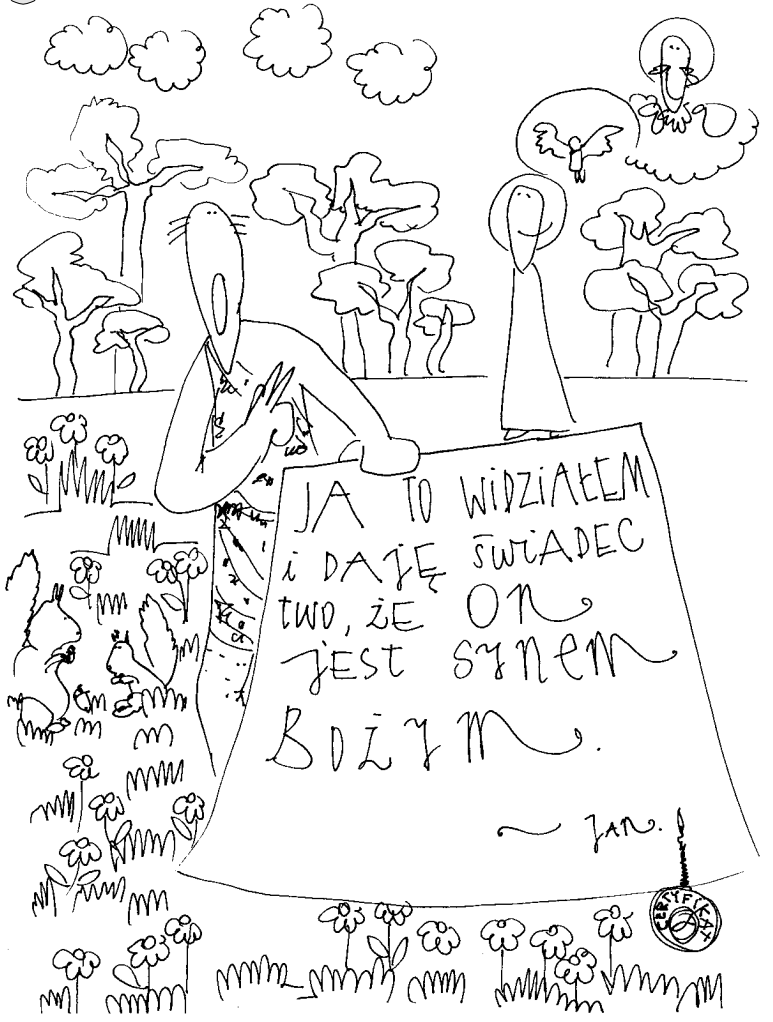 JA TO WIDZIAŁEM
i DAJĘ ŚWiADEC
TWO, ŻE ON
JEST SYNEM
BOŻYM.
~ JAN.
CERTYFIKAT